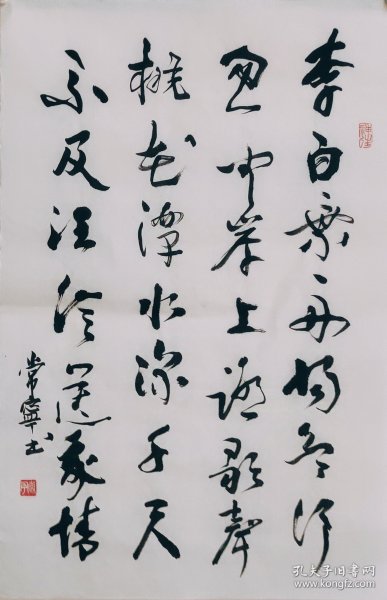 李白乘舟将欲行
忽闻岸上踏歌声
桃花潭水深千尺
不及汪伦送我情
常寧书
孔夫子旧书网
www.kongfz.com